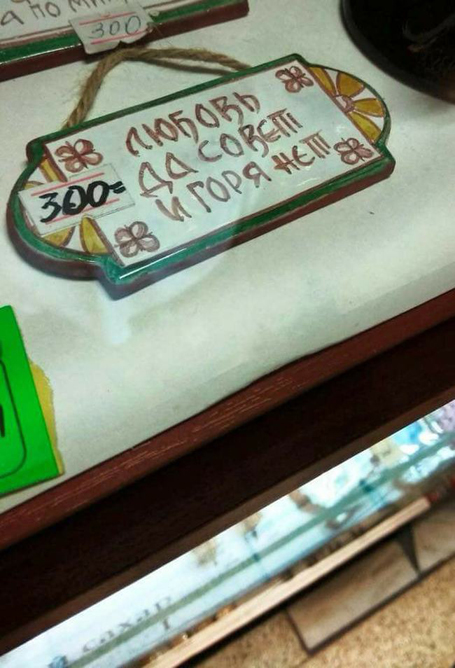 а по м
300
ЛЮБОВЬ
ДА СОВЕТ
И ГОРЯ НЕТ
300=
сахар